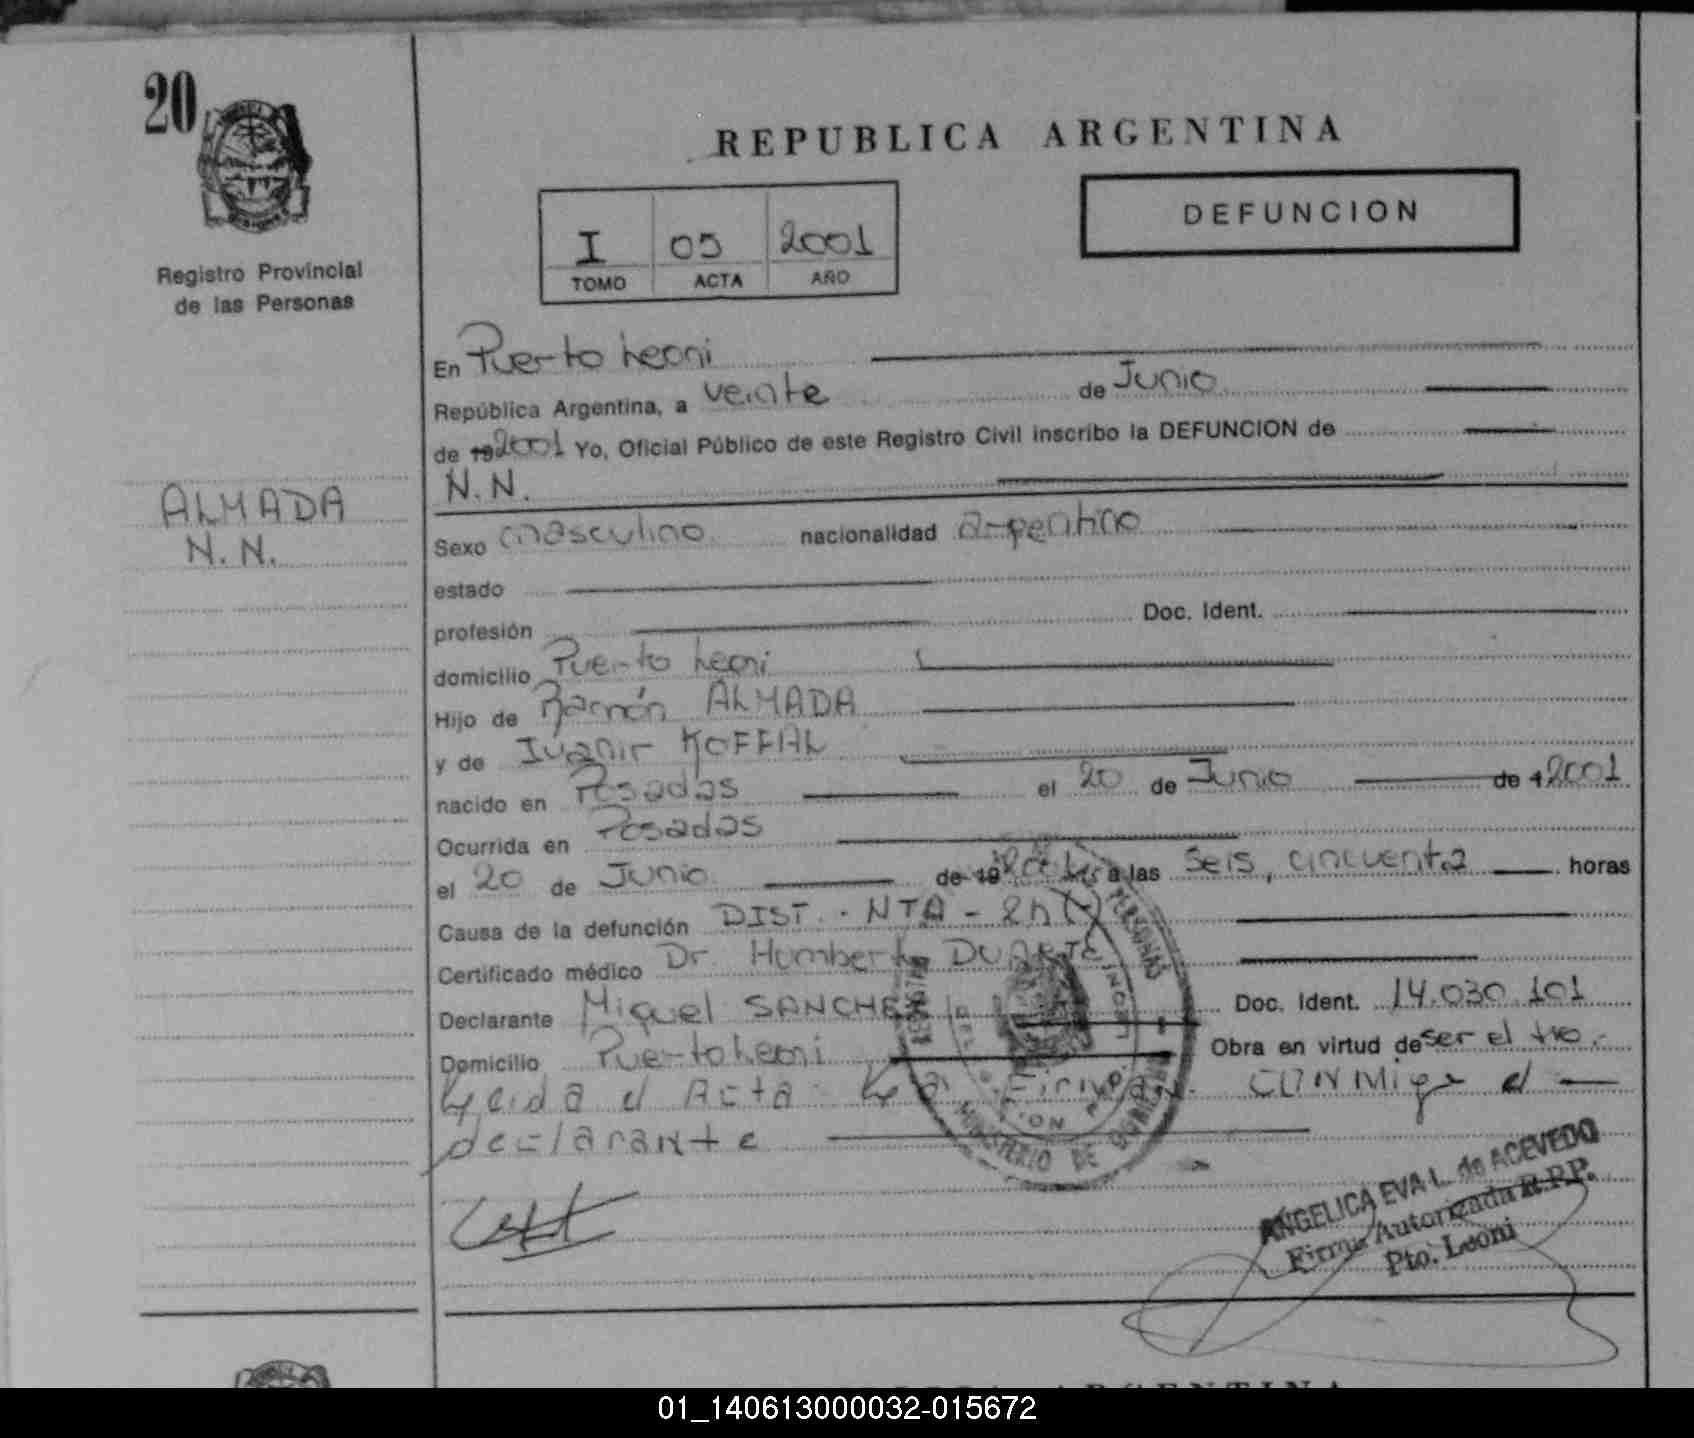 20
REPUBLICA ARGENTINA
DEFUNCION
I 05 2001
TOMO ACTA AÑO
Registro Provincial
de las Personas
ALMADA
N.N.
En Puerto Leoni
República Argentina, a veinte de Junio
de 19 2001 Yo, Oficial Público de este Registro Civil inscribo la DEFUNCION de
N.N.
Sexo masculino nacionalidad argentino
estado
profesión Doc. Ident.
domicilio Puerto Leoni
Hijo de Ramón ALMADA
y de Ivanir KOFFAL
nacido en Posadas el 20 de Junio de 1 2001
Ocurrida en Posadas
el 20 de Junio de 19 2001 a las seis, cincuenta horas
Causa de la defunción DIST. - NTA -
Certificado médico Dr. Humberto DUARTE
Declarante Miguel SANCHEZ Doc. Ident. 14.030.101
Domicilio Puerto Leoni Obra en virtud de ser el tio.-
Leida el Acta La Firma CONMigo el
declarante
MINISTERIO DE GOBIERNO
ANGELICA EVA L. de ACEVEDO
Firma Autorizada R.P.P.
Pto. Leoni
01_140613000032-015672